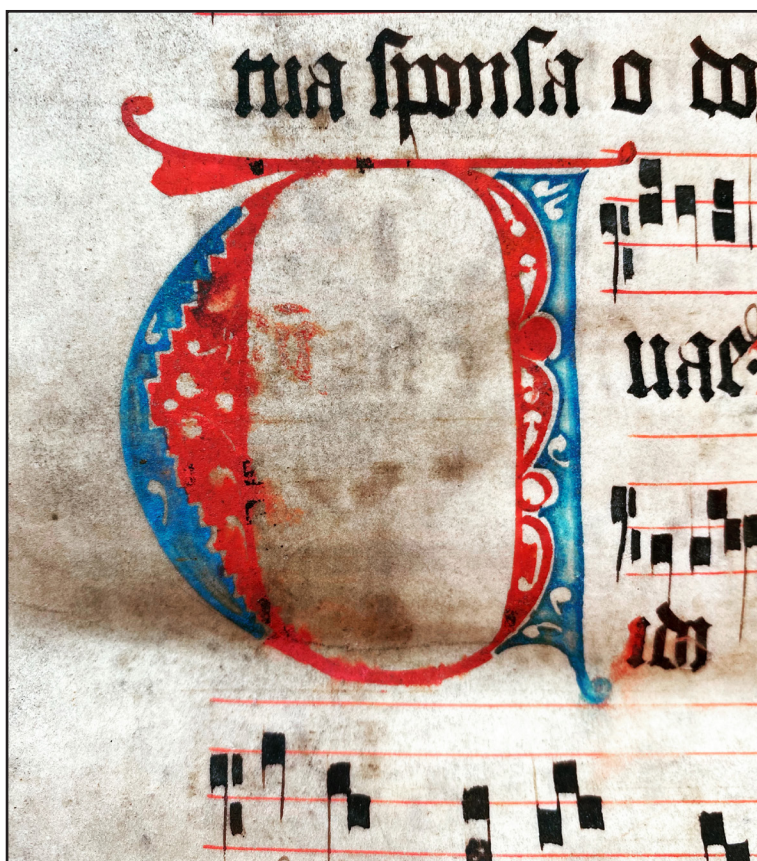 tua sponsa o do
Quae
idi